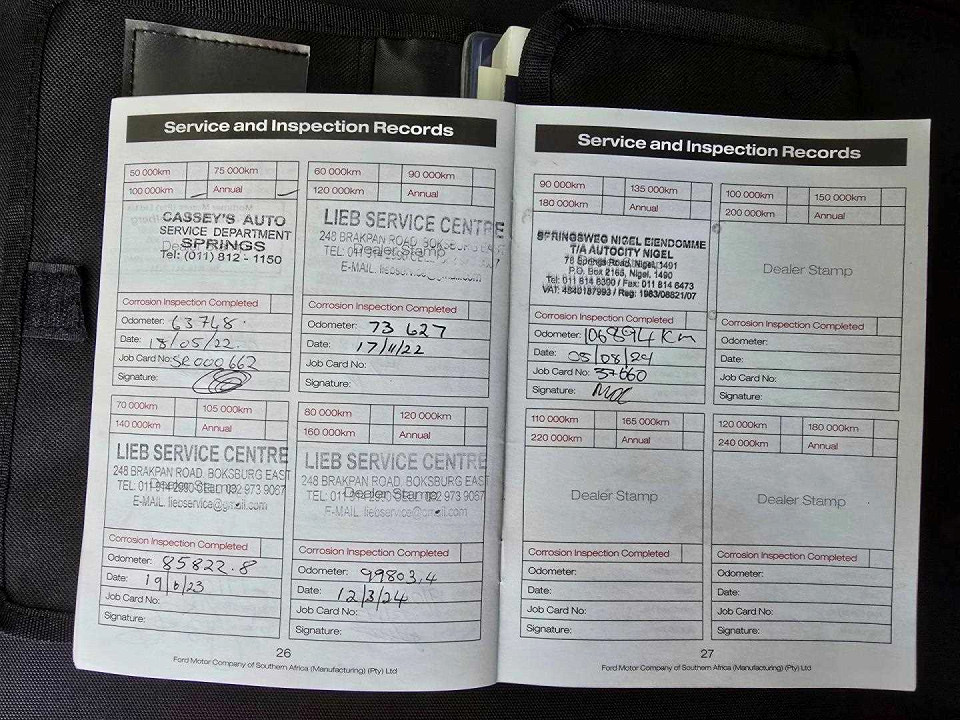 Service and Inspection Records
50 000km 75 000km
100 000km Annual
CASSEY'S AUTO
SERVICE DEPARTMENT
SPRINGS
Tel: (011) 812 - 1150
Corrosion Inspection Completed
Odometer: 63748.
Date: 18/05/22.
Job Card No: SR000662
Signature:
60 000km 90 000km
120 000km Annual
LIEB SERVICE CENTRE
248 BRAKPAN ROAD, BOKSBURG EAST
Dealer Stamp
Corrosion Inspection Completed
Odometer: 73 627
Date: 17/11/22
Job Card No:
Signature:
70 000km 105 000km
140 000km Annual
LIEB SERVICE CENTRE
248 BRAKPAN ROAD, BOKSBURG EAST
973 9067
E-MAIL. liebservice@gmail.com
Corrosion Inspection Completed
Odometer: 85822.8
Date: 19/6/23
Job Card No:
Signature:
80 000km 120 000km
160 000km Annual
LIEB SERVICE CENTRE
248 BRAKPAN ROAD, BOKSBURG EAST
Dealer Stamp 973 9067
E-MAIL. liebservice@gmail.com
Corrosion Inspection Completed
Odometer: 99803,4
Date: 12/3/24
Job Card No:
Signature:
26
Ford Motor Company of Southern Africa (Manufacturing) (Pty) Ltd
Service and Inspection Records
90 000km 135 000km
180 000km Annual
SPRINGSWEG NIGEL EIENDOMME
T/A AUTOCITY NIGEL
78 Springs Road, Nigel, 1491
P.O. Box 2165, Nigel, 1490
Tel: 011 814 6300 / Fax: 011 814 6473
VAT: 4840187993 / Reg: 1983/08821/07
Corrosion Inspection Completed
Odometer: 106894 Km
Date: 05/08/24
Job Card No: 37660
Signature:
100 000km 150 000km
200 000km Annual
Dealer Stamp
Corrosion Inspection Completed
Odometer:
Date:
Job Card No:
Signature:
110 000km 165 000km
220 000km Annual
Dealer Stamp
Corrosion Inspection Completed
Odometer:
Date:
Job Card No:
Signature:
120 000km 180 000km
240 000km Annual
Dealer Stamp
Corrosion Inspection Completed
Odometer:
Date:
Job Card No:
Signature:
27
Ford Motor Company of Southern Africa (Manufacturing) (Pty) Ltd